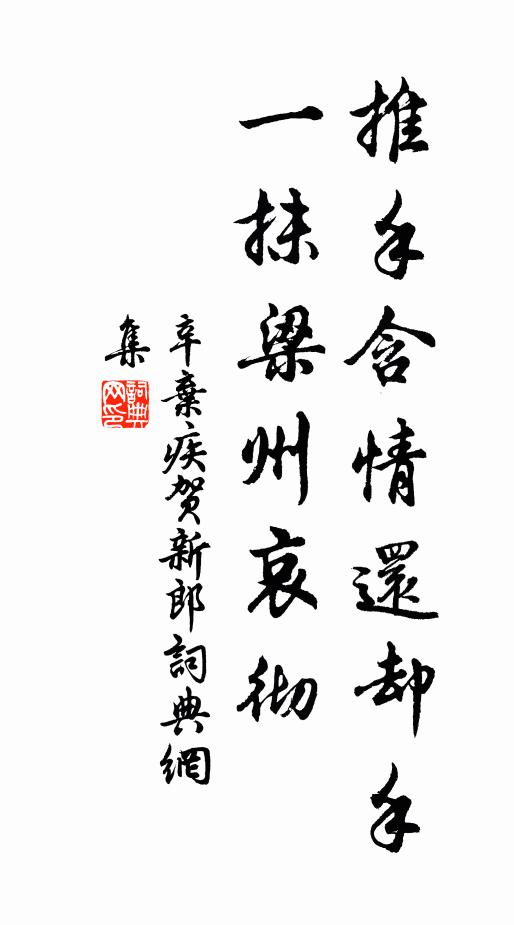 推手含情還却手
一抹梁州哀彻
辛棄疾賀新郎詞典網
集
詞典網印